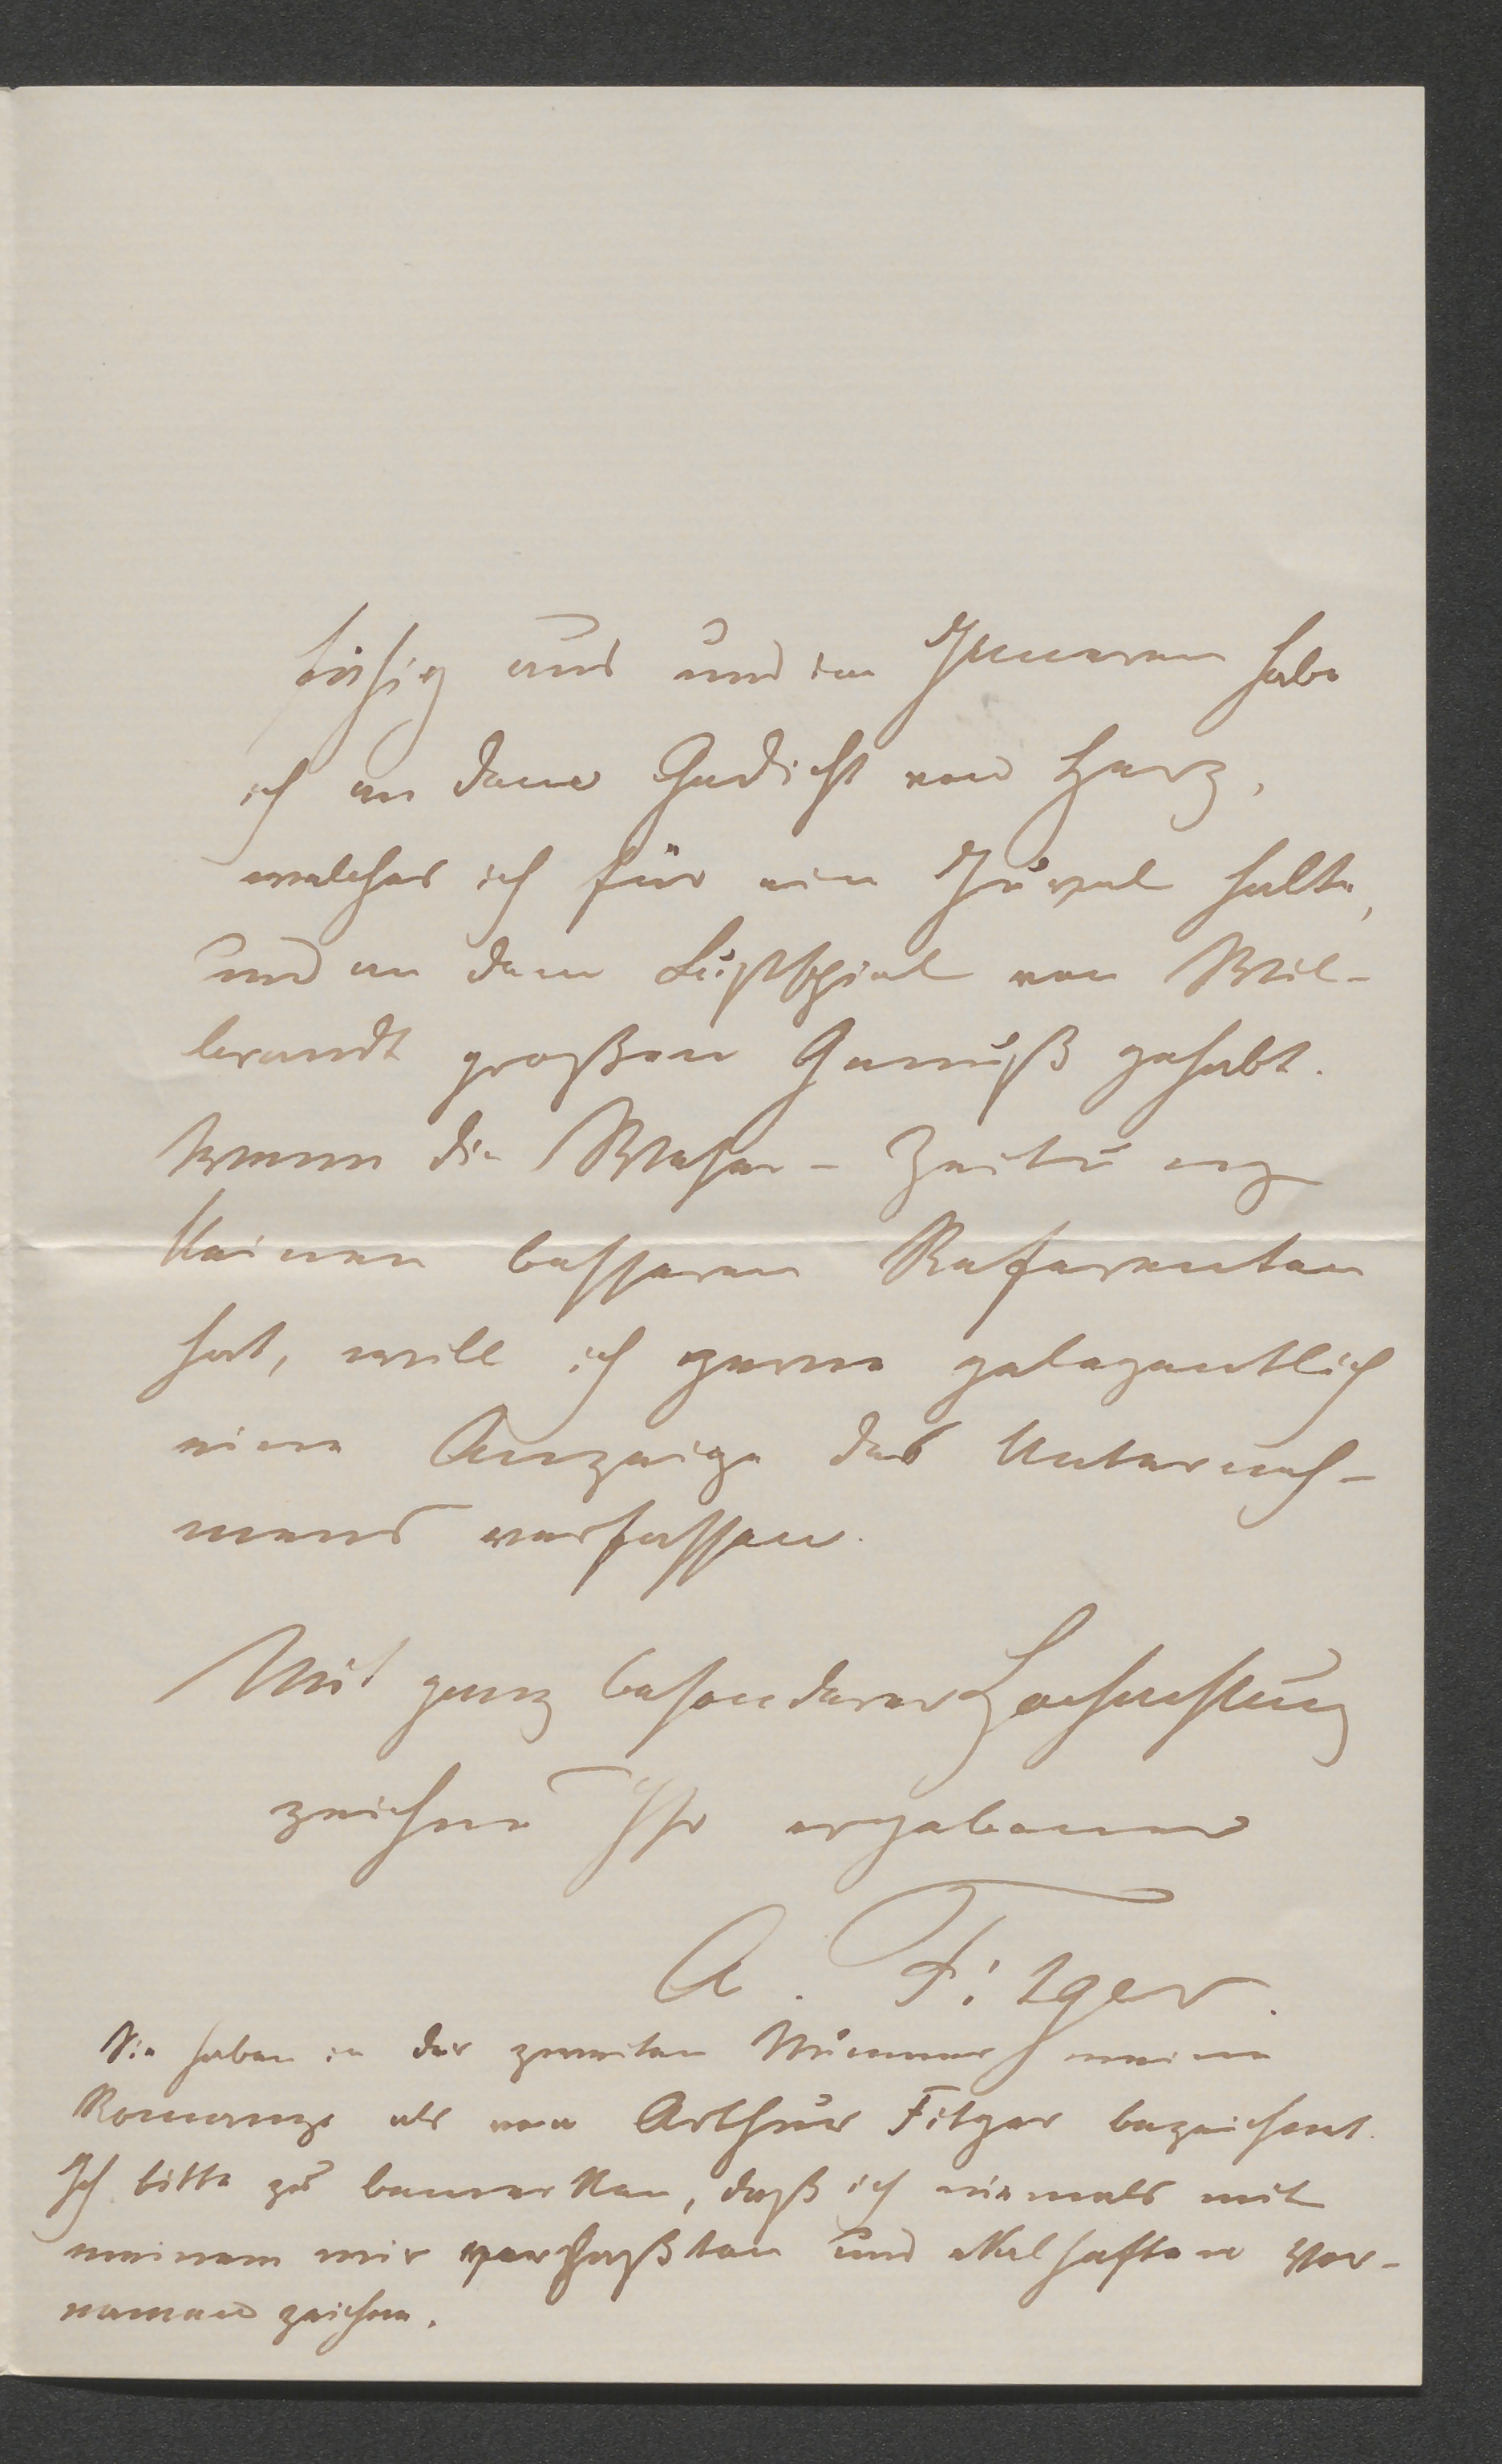 ich an dem Gedicht von Herz,
welches ich für ein Juwel halte,
und an dem Lustspiel von Wil-
brandt großen Genuß gehabt.
Wenn die Weser-Zeitung
keinen besseren Referenten
hat, will ich gerne gelegentlich
eine Anzeige des Unterneh-
mens verfassen.
Mit ganz besonderer Hochachtung
zeichne Ihr ergebener
A. Fitger.
Sie haben in der zweiten Nummer meine
Romanze als von Arthur Fitger bezeichnet.
Ich bitte zu bemerken, daß ich niemals mit
meinem mir verhaßten und ekelhaften Vor-
namen zeichne.